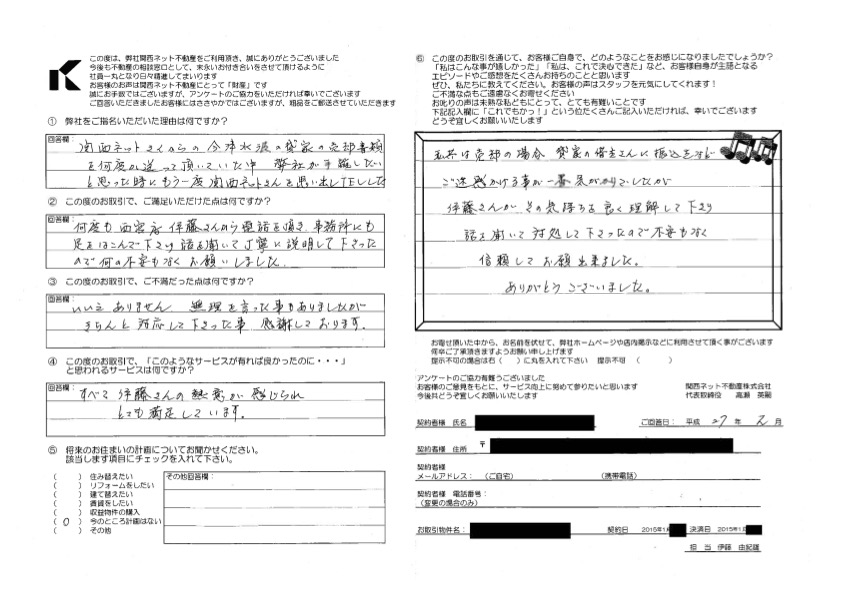 この度は、弊社関西ネット不動産をご利用頂き、誠にありがとうございました
今後も不動産の相談窓口として、末永いお付き合いをさせて頂けるように
社員一丸となり日々精進してまいります
お客様のお声は関西ネット不動産にとって「財産」です
誠にお手数ではございますが、アンケートのご協力をいただければ幸いでございます
ご回答いただきましたお客様にはささやかではございますが、粗品をご郵送させていただきます
① 弊社をご指名いただいた理由は何ですか?
回答欄:
関西ネットさんからの今津水波の貸家の売却書類
を何度か送って頂いていた中 弊社が手離したい
と思った時にもう一度関西ネットさんを思い出してました
② この度のお取引で、ご満足いただけた点は何ですか?
回答欄:
何度も西宮店伊藤さんから電話を頂き事務所にも
足をはこんで下さり話を聞いて丁寧に説明して下さった
ので何の不安もなくお願いしました.
③ この度のお取引で、ご不満だった点は何ですか?
回答欄:
いいえ ありません 無理を言った事もありましたが
きちんと対応して下さった事 感謝しております.
④ この度のお取引で、「このようなサービスが有れば良かったのに・・・」
と思われるサービスは何ですか?
回答欄:
すべて伊藤さんの熱意が感じられ
とても満足しています.
⑤ 将来のお住まいの計画についてお聞かせください。
該当します項目にチェックを入れて下さい。
( ) 住み替えたい
( ) リフォームをしたい
( ) 建て替えたい
( ) 賃貸をしたい
( ) 収益物件の購入
( O ) 今のところ計画はない
( ) その他
その他回答欄:
⑥ この度のお取引を通じて、お客様ご自身で、どのようなことをお感じになりましたでしょうか?
「私はこんな事が嬉しかった」「私は、これで決心できた」など、お客様自身が主語となる
エピソードやご感想をたくさんお持ちのことと思います
ぜひ、私たちに教えてください。お客様の声はスタッフを元気にしてくれます!
ご不満な点もご遠慮なくお寄せください
お叱りの声は未熟な私どもにとって、とても有難いことです
下記記入欄に「これでもかっ!」という位たくさんご記入いただければ、幸いでございます
どうぞ宜しくお願いいたします
私共は売却の場合 貸家の借主さんに振込をするに
ご迷惑かける事が一番気がかりでしたが
伊藤さんがその気持ちを良く理解して下さり
話を聞いて対処して下さったので不安もなく
信頼してお願い出来ました。
ありがとうございました。
お寄せ頂いた中から、お名前を伏せて、弊社ホームページや店内掲示などに利用させて頂く事がございます
何卒ご了承頂きますようお願い申し上げます
提示不可の場合は右( )に丸を入れて下さい 提示不可 ( )
アンケートのご協力有難うございました
お客様のご意見をもとに、サービス向上に努めて参りたいと思います
今後共どうぞ宜しくお願いいたします
関西ネット不動産株式会社
代表取締役 高瀬 英嗣
契約者様 氏名
ご回答日: 平成 27 年 2 月
契約者様 住所 〒
契約者様
メールアドレス: (ご自宅) (携帯電話)
契約者様 電話番号:
(変更の場合のみ)
お取引物件名: 契約日 2015年1月 決済日 2015年1月
担 当 伊藤 由紀雄